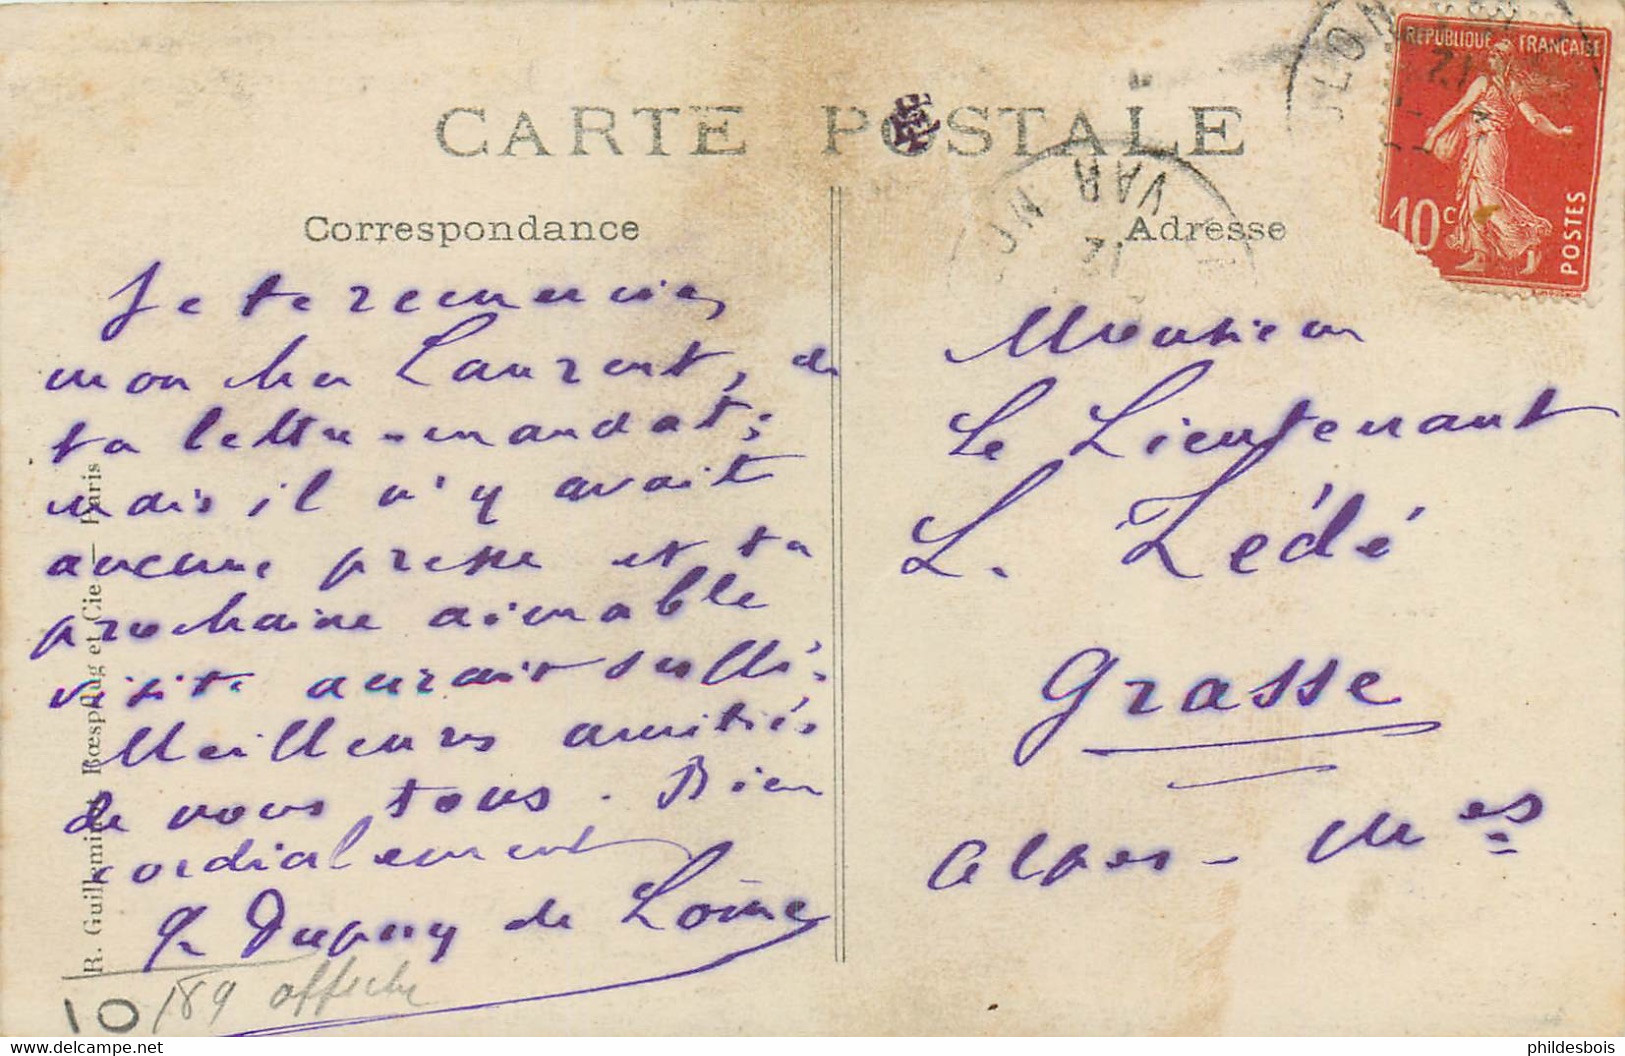 CARTE POSTALE
Correspondance
Adresse
REPUBLIQUE FRANÇAISE
10c
POSTES
VAR
Je te remercie,
mon cher Laurent, de
ta lettre-mandat;
mais il n'y avait
aucune presse et ta
prochaine aimable
visite aurait suffi.
Meilleures amitiés
de nous tous. Bien
cordialement
Dupuy de Lôme
Monsieur
Le Lieutenant
L. Lédé
Grasse
Alpes-Mmes
R. Guilleminot, Bœspflug et Cie — Paris
10
189
phildesbois
www.delcampe.net